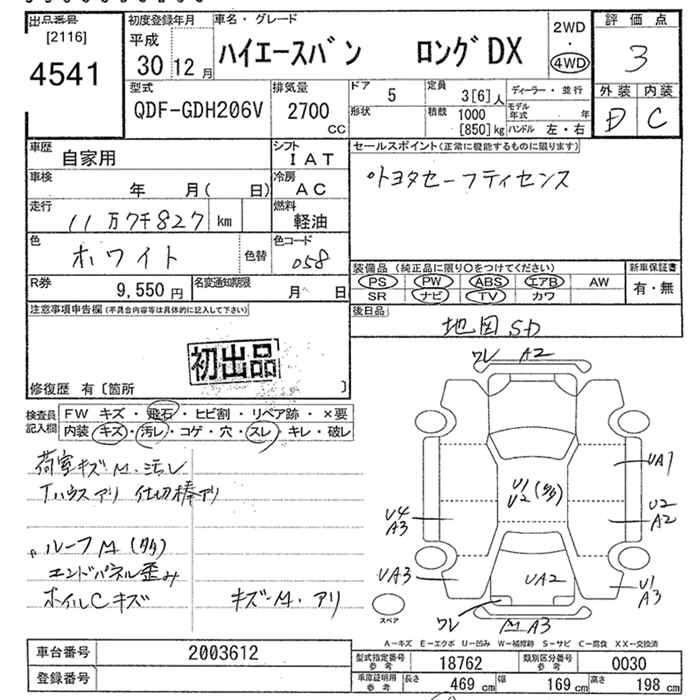 出品番号
[2116]
4541
初度登録年月
平成
30 12 月
車名・グレード
ハイエースバン ロングDX
2WD
・
4WD
評価点
3
型式
QDF-GDH206V
排気量
2700
CC
ドア
5
定員
3[6]人
ディーラー・並行
形状
積載
1000
[850]kg
モデル年式 年
ハンドル 左・右
外装 内装
D C
車歴
自家用
シフト
IAT
セールスポイント(正常に機能するものに限ります)
トヨタセーフティセンス
車検
年 月( 日)
冷房
AC
走行
11万7千827 km
燃料
軽油
色
ホワイト
色替
色コード
058
装備品 (純正品に限り○をつけてください)
PS PW ABS エアB AW
SR ナビ TV カワ
新車保証書
有・無
R券
9,550 円
名変通知期限
月 日
後日品
地図SD
注意事項申告欄(不具合内容等は具体的に記入して下さい)
初出品
修復歴 有〔箇所 〕
検査員記入欄
FW キズ・飛石・ヒビ割・リペア跡・×要
内装 キズ・汚レ・コゲ・穴・スレ・キレ・破レ
荷室キズM・汚レ
Tハウスアリ 仕切棒アリ
ルーフM(多)
エンドパネル歪み
ホイルCキズ キズ・M・アリ
ワレ A2
UA1
U1
U2 (多)
U4
A3
U2
A2
UA3
UA2
U1
A3
スペア
ワレ
M A3
A－キズ E－エクボ U－凹み W－補修跡 S－サビ C－腐食 XX－交換済
車台番号
2003612
登録番号
型式指定番号
参考
18762
類別区分番号
参考
0030
車庫証明用
参考
長さ 469 cm
幅 169 cm
高さ 198 cm